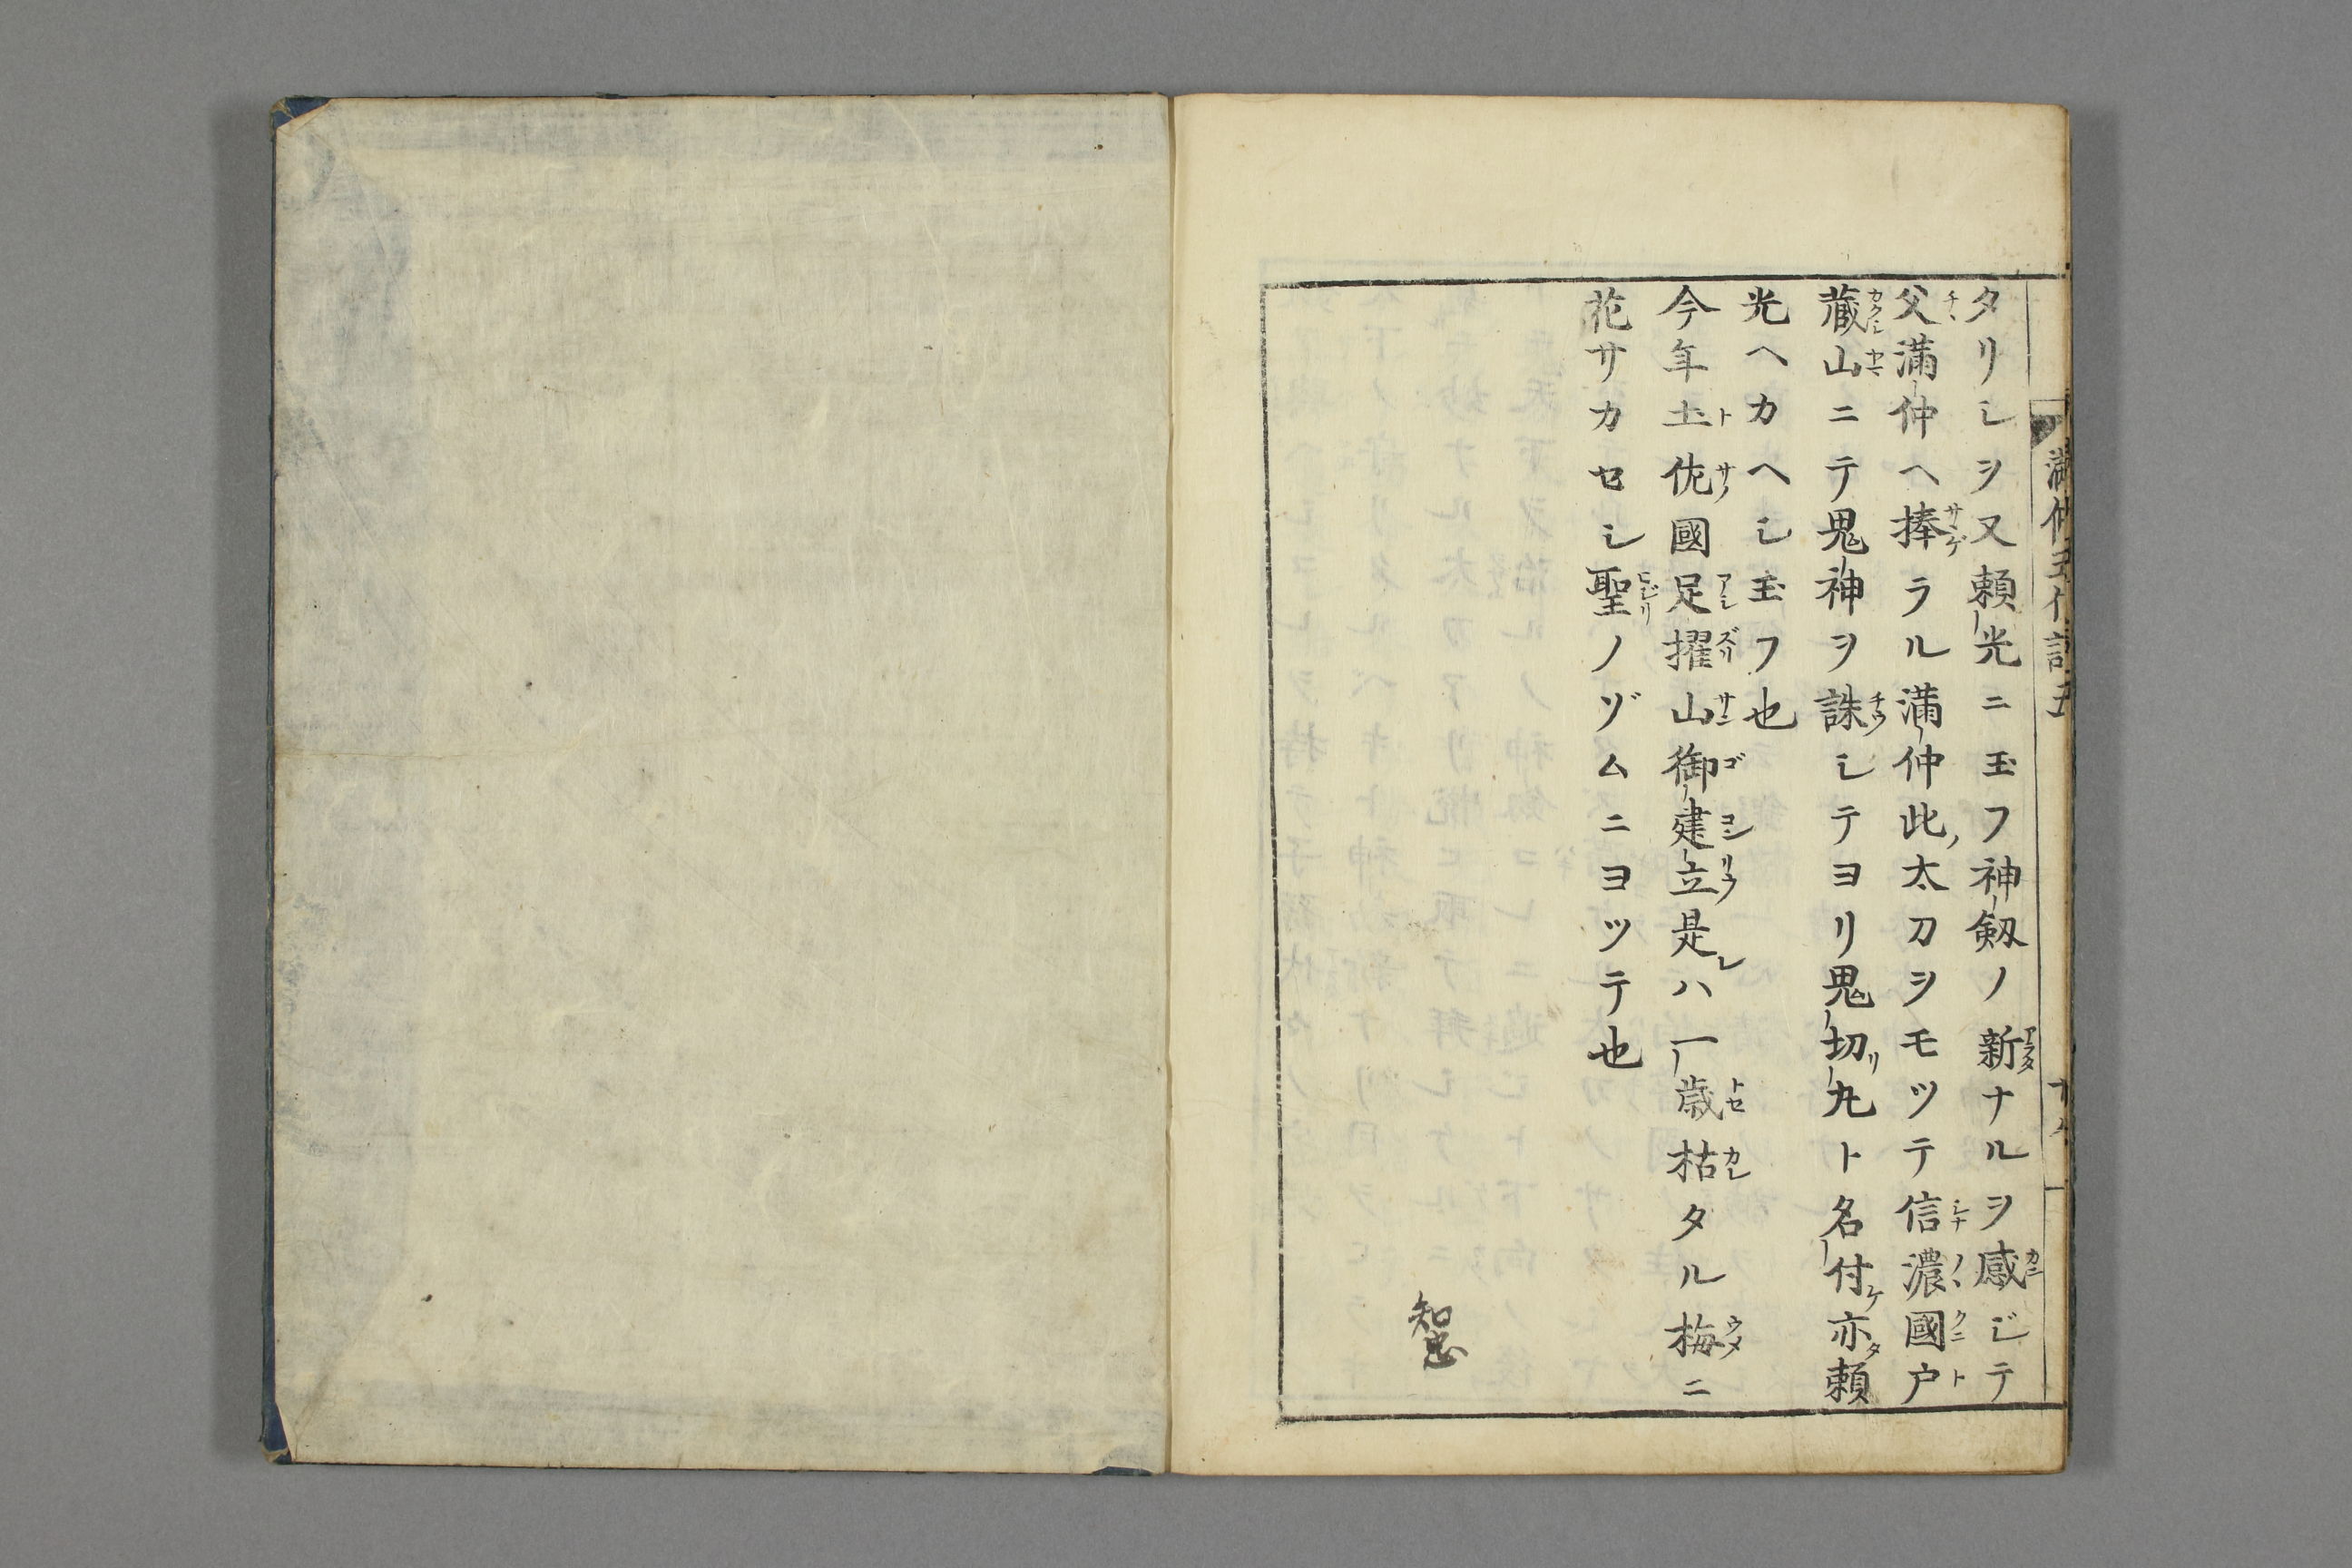 タリシヲ又頼光ニ玉フ神劔ノ新ナルヲ感ジテ
父満仲ヘ捧ラル満仲此太刀ヲモツテ信濃國戸
蔵山ニテ鬼神ヲ誅シテヨリ鬼切丸ト名付亦頼
光ヘカヘシ玉フ也
今年土佐國足擢山御建立是レハ一歳枯タル梅ニ
花サカセシ聖ノゾムニヨツテ也